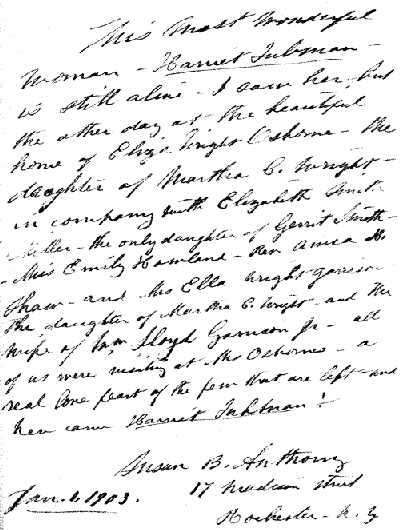 This most wonderful
woman - Harriet Tubman -
is still alive - I saw her but
the other day at the beautiful
home of Eliza Wright Osborne - the
daughter of Martha C. Wright -
in company with Elizabeth Smith
Miller - the only daughter of Gerrit Smith -
- Miss Emily Howland - Rev. Anna H.
Shaw - and Mrs Ella Wright Garrison
the daughter of Martha C. Wright - and the
wife of Wm. Lloyd Garrison Jr - all
of us were visiting at Mrs Osbornes - a
real love feast of the few that are left - and
here came Harriet Tubman!
Susan B. Anthony
Jan. 1. 1903. 17 Madison street
Rochester - N. Y.